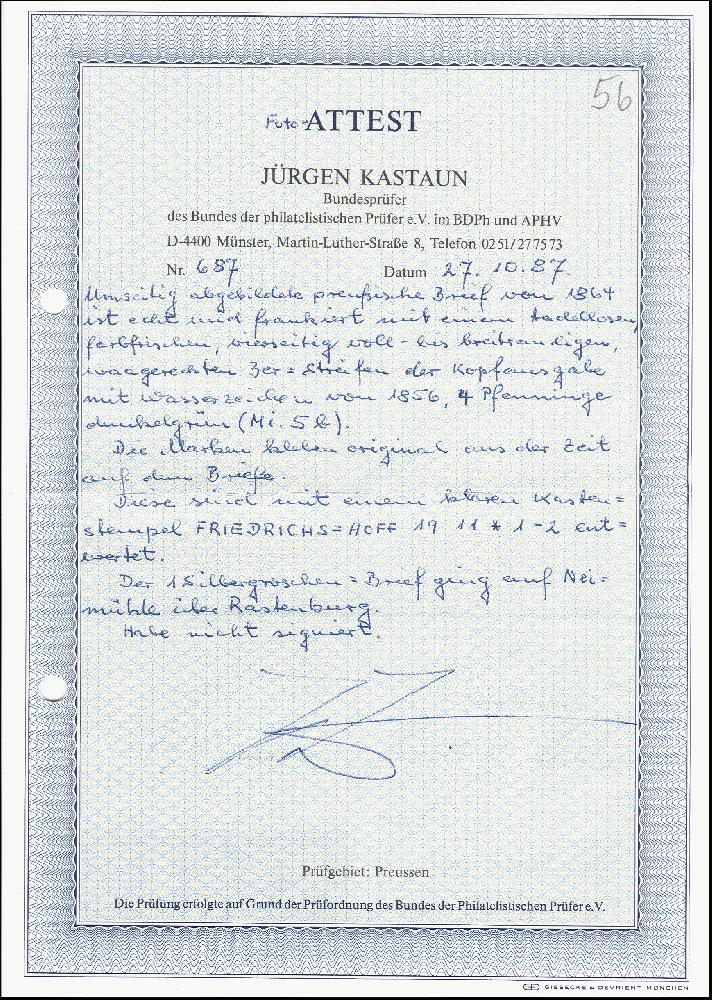 56
Foto-ATTEST
JÜRGEN KASTAUN
Bundesprüfer
des Bundes der philatelistischen Prüfer e.V. im BDPh und APHV
D-4400 Münster, Martin-Luther-Straße 8, Telefon 0251/277573
Nr. 687 Datum 27.10.87.
Umseitig abgebildete preußische Brief von 1864
ist echt und frankiert mit einem tadellosen,
farbfrischen, vierseitig voll- bis breitrandigen,
waagerechten 3er=Streifen der Kopfausgabe
mit Wasserzeichen von 1856, 4 Pfenninge
dunkelgrün (Mi. 5b).
Die Marken kleben original aus der Zeit
auf dem Briefe.
Diese sind mit einem klaren Kasten=
stempel FRIEDRICHS=HOFF 19 11 * 1-2 ent=
wertet.
Der 1 Silbergroschen=Brief ging auf Nei=
mühle über Rastenburg.
Habe nicht signiert.
Prüfgebiet: Preussen
Die Prüfung erfolgte auf Grund der Prüfordnung des Bundes der Philatelistischen Prüfer e.V.
GIESECKE & DEVRIENT MÜNCHEN